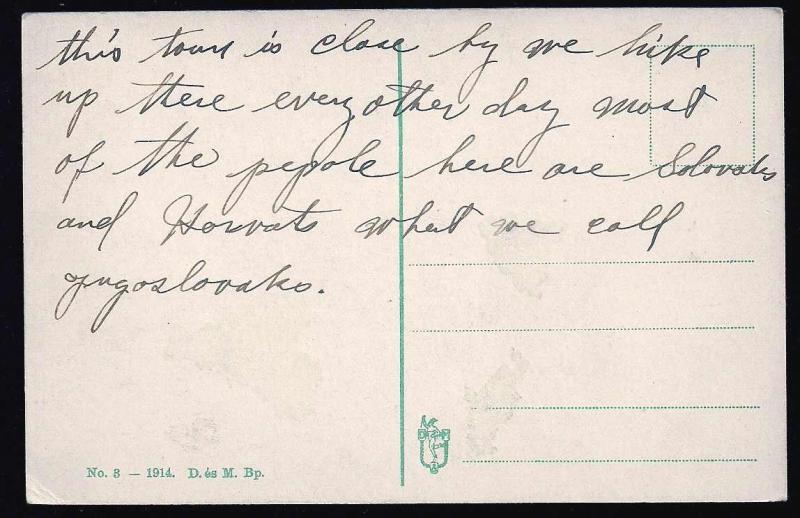 this town is close by we hike
up there every other day most
of the pepole here are Solovaks
and Horvats what we call
jugoslovaks.
No. 3 — 1914. D. és M. Bp.